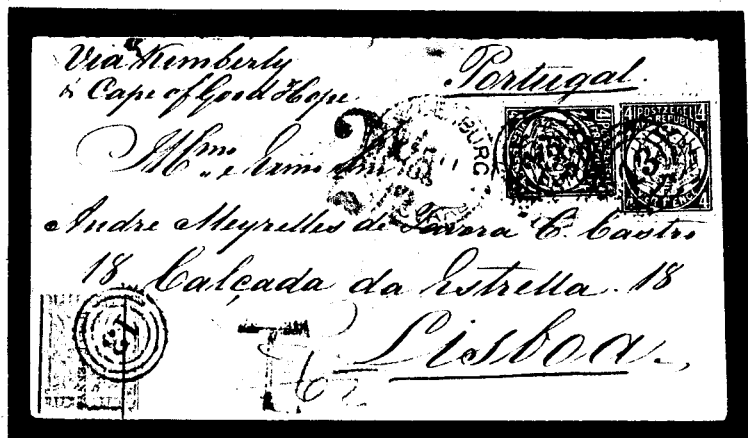 Via Kimberly
& Cape of Good Hope
Portugal.
Illmo e Exmo Snr
Andre Meyrelles de Tavora C. Castro
18 Calçada da Estrella. 18
Lisboa.
T
4 POSTZEGEL 4